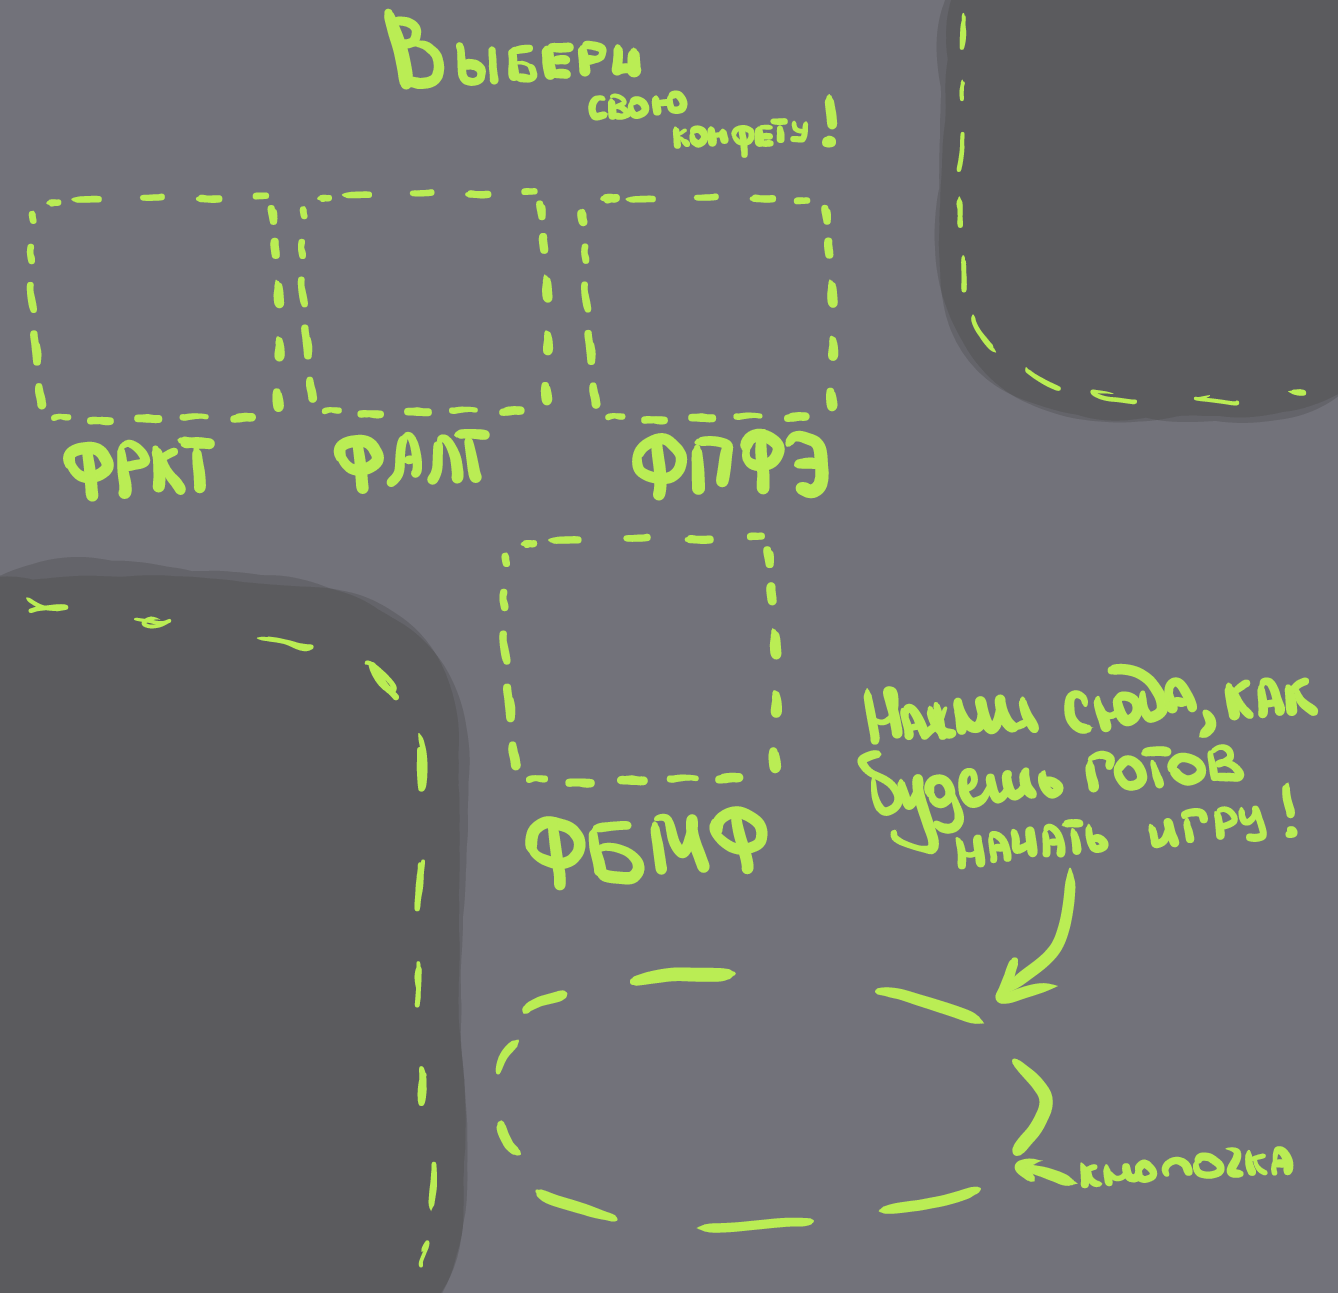 Выбери
свою
конфету!
ФРКТ
ФАЛТ
ФПФЭ
ФБМФ
Нажми сюда, как
будешь готов
начать игру!
кнопочка